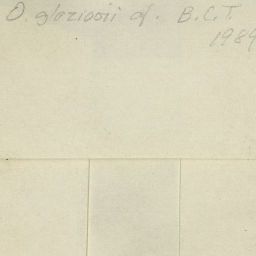 O. glaziovii af. B.C.T.
1989